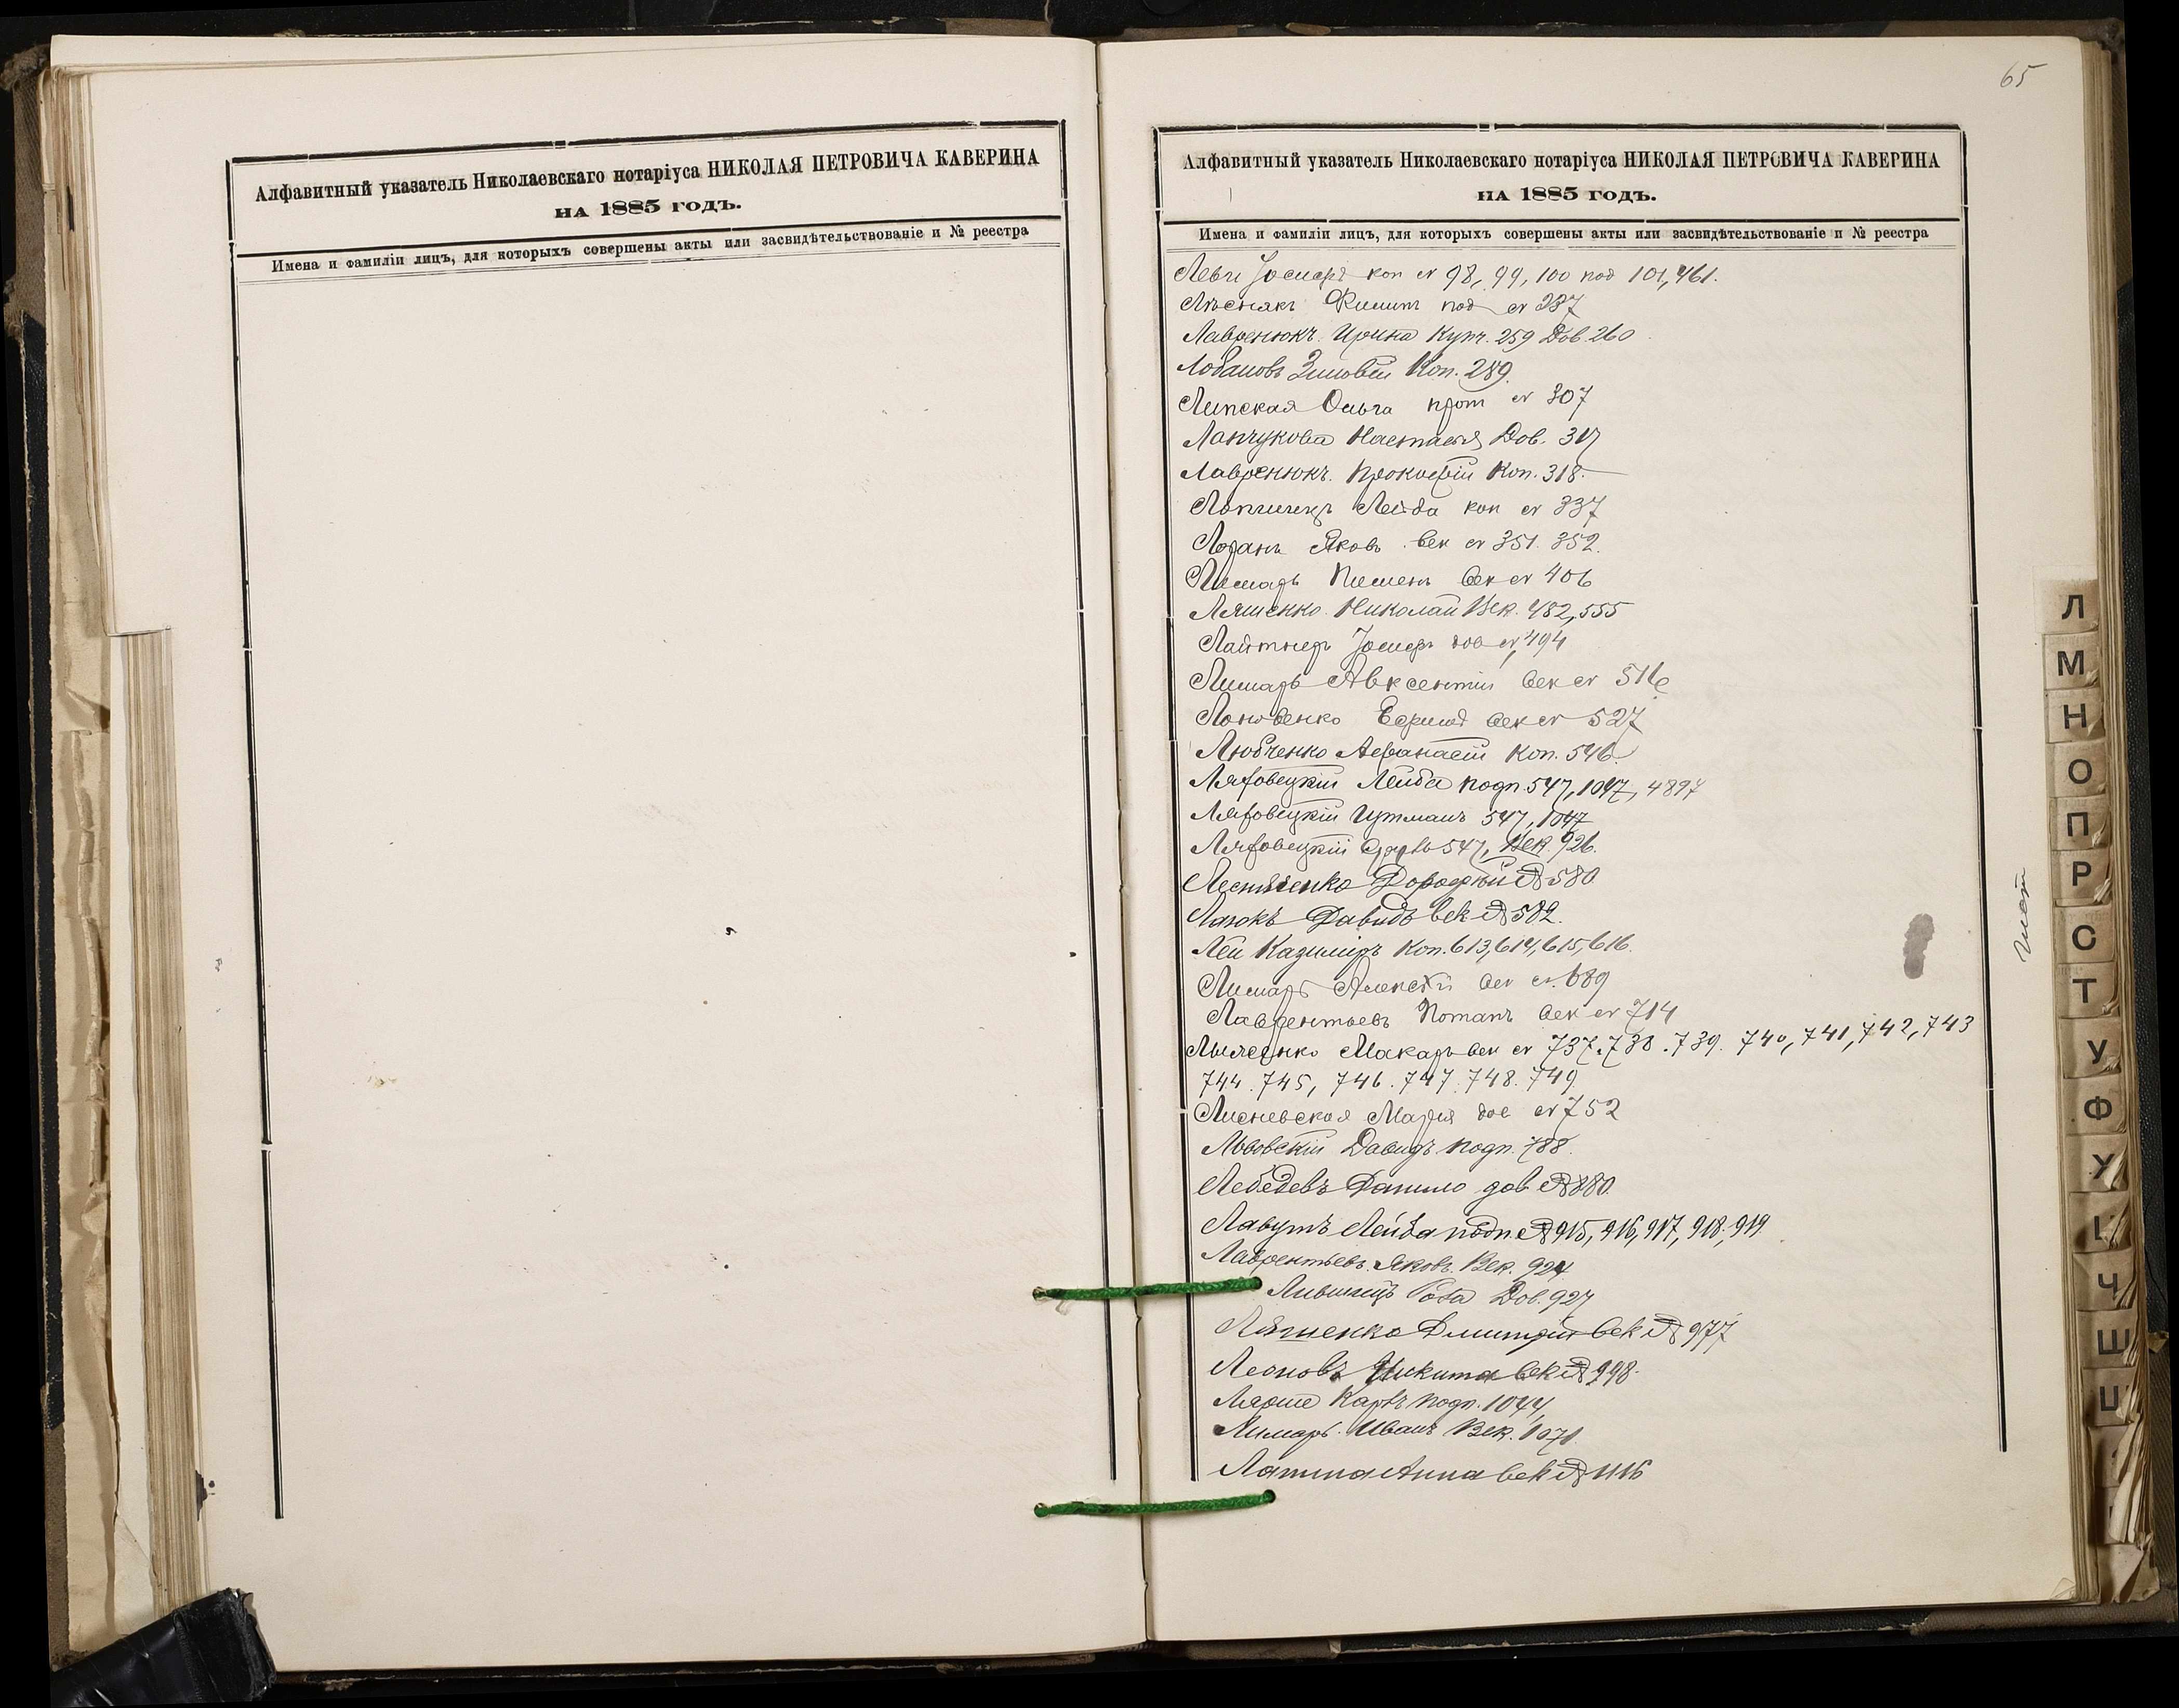 Алфавитный указатель Николаевскаго нотаріуса НИКОЛАЯ ПЕТРОВИЧА КАВЕРИНА
НА 1885 ГОДЪ.
Имена и фамиліи лицъ, для которыхъ совершены акты или засвидѣтельствованіе и № реестра
65
Алфавитный указатель Николаевскаго нотаріуса НИКОЛАЯ ПЕТРОВИЧА КАВЕРИНА
НА 1885 ГОДЪ.
Имена и фамиліи лицъ, для которыхъ совершены акты или засвидѣтельствованіе и № реестра
Левы Іосифъ коп № 98, 99, 100 под 101, 461.
Лѣснякъ Филипъ под № 237
Лавренюкъ Ирина Купч. 259 Дов. 260
Лобановъ Зиновій Коп. 289.
Липская Ольга прот № 307
Лапчукова Настасья Дов. 317
Лавренюкъ Прокофій Коп. 318.
Лейба коп № 337
Лоранъ Яковъ век № 351. 352.
Лимарь Пименъ век № 406
Ляшенко Николай Век. 482, 555
Лайтнеръ Іосифъ дов № 494
Лимарь Авксентій век № 516
век № 527
Любченко Афанасій Коп. 546
Ляховецкій Лейба подп. 547, 1047, 4897
Ляховецкій Гутманъ 547, 1047
Ляховецкій 547, Век 926.
Дорофей № 580
Давидъ век № 582.
Лей Казиміръ Коп. 613, 614, 615, 616.
Лимарь Алексѣй век №. 689
Лаврентьевъ Потапъ век № 714
Макаръ век № 737. 738. 739. 740, 741, 742, 743
744. 745, 746. 747. 748. 749
Лисневская Марія дов № 752
Львовскій Давидъ подп. 788.
Лебедевъ Данило дов № 880.
Лавутъ Лейба подп. № 915, 916, 917, 918, 919.
Лаврентьевъ Яковъ. Век. 924
Лившицъ Роза Дов. 927
Ляшенко Дмитрій век № 977
Леоновъ Никита век № 998.
Карлъ подп. 1044,
Лимарь Иванъ Век. 1071.
Лапина Анна век № 1116
Л
М
Н
О
П
Р
С
Т
У
Ф
Х
Ц
Ч
Ш
Щ